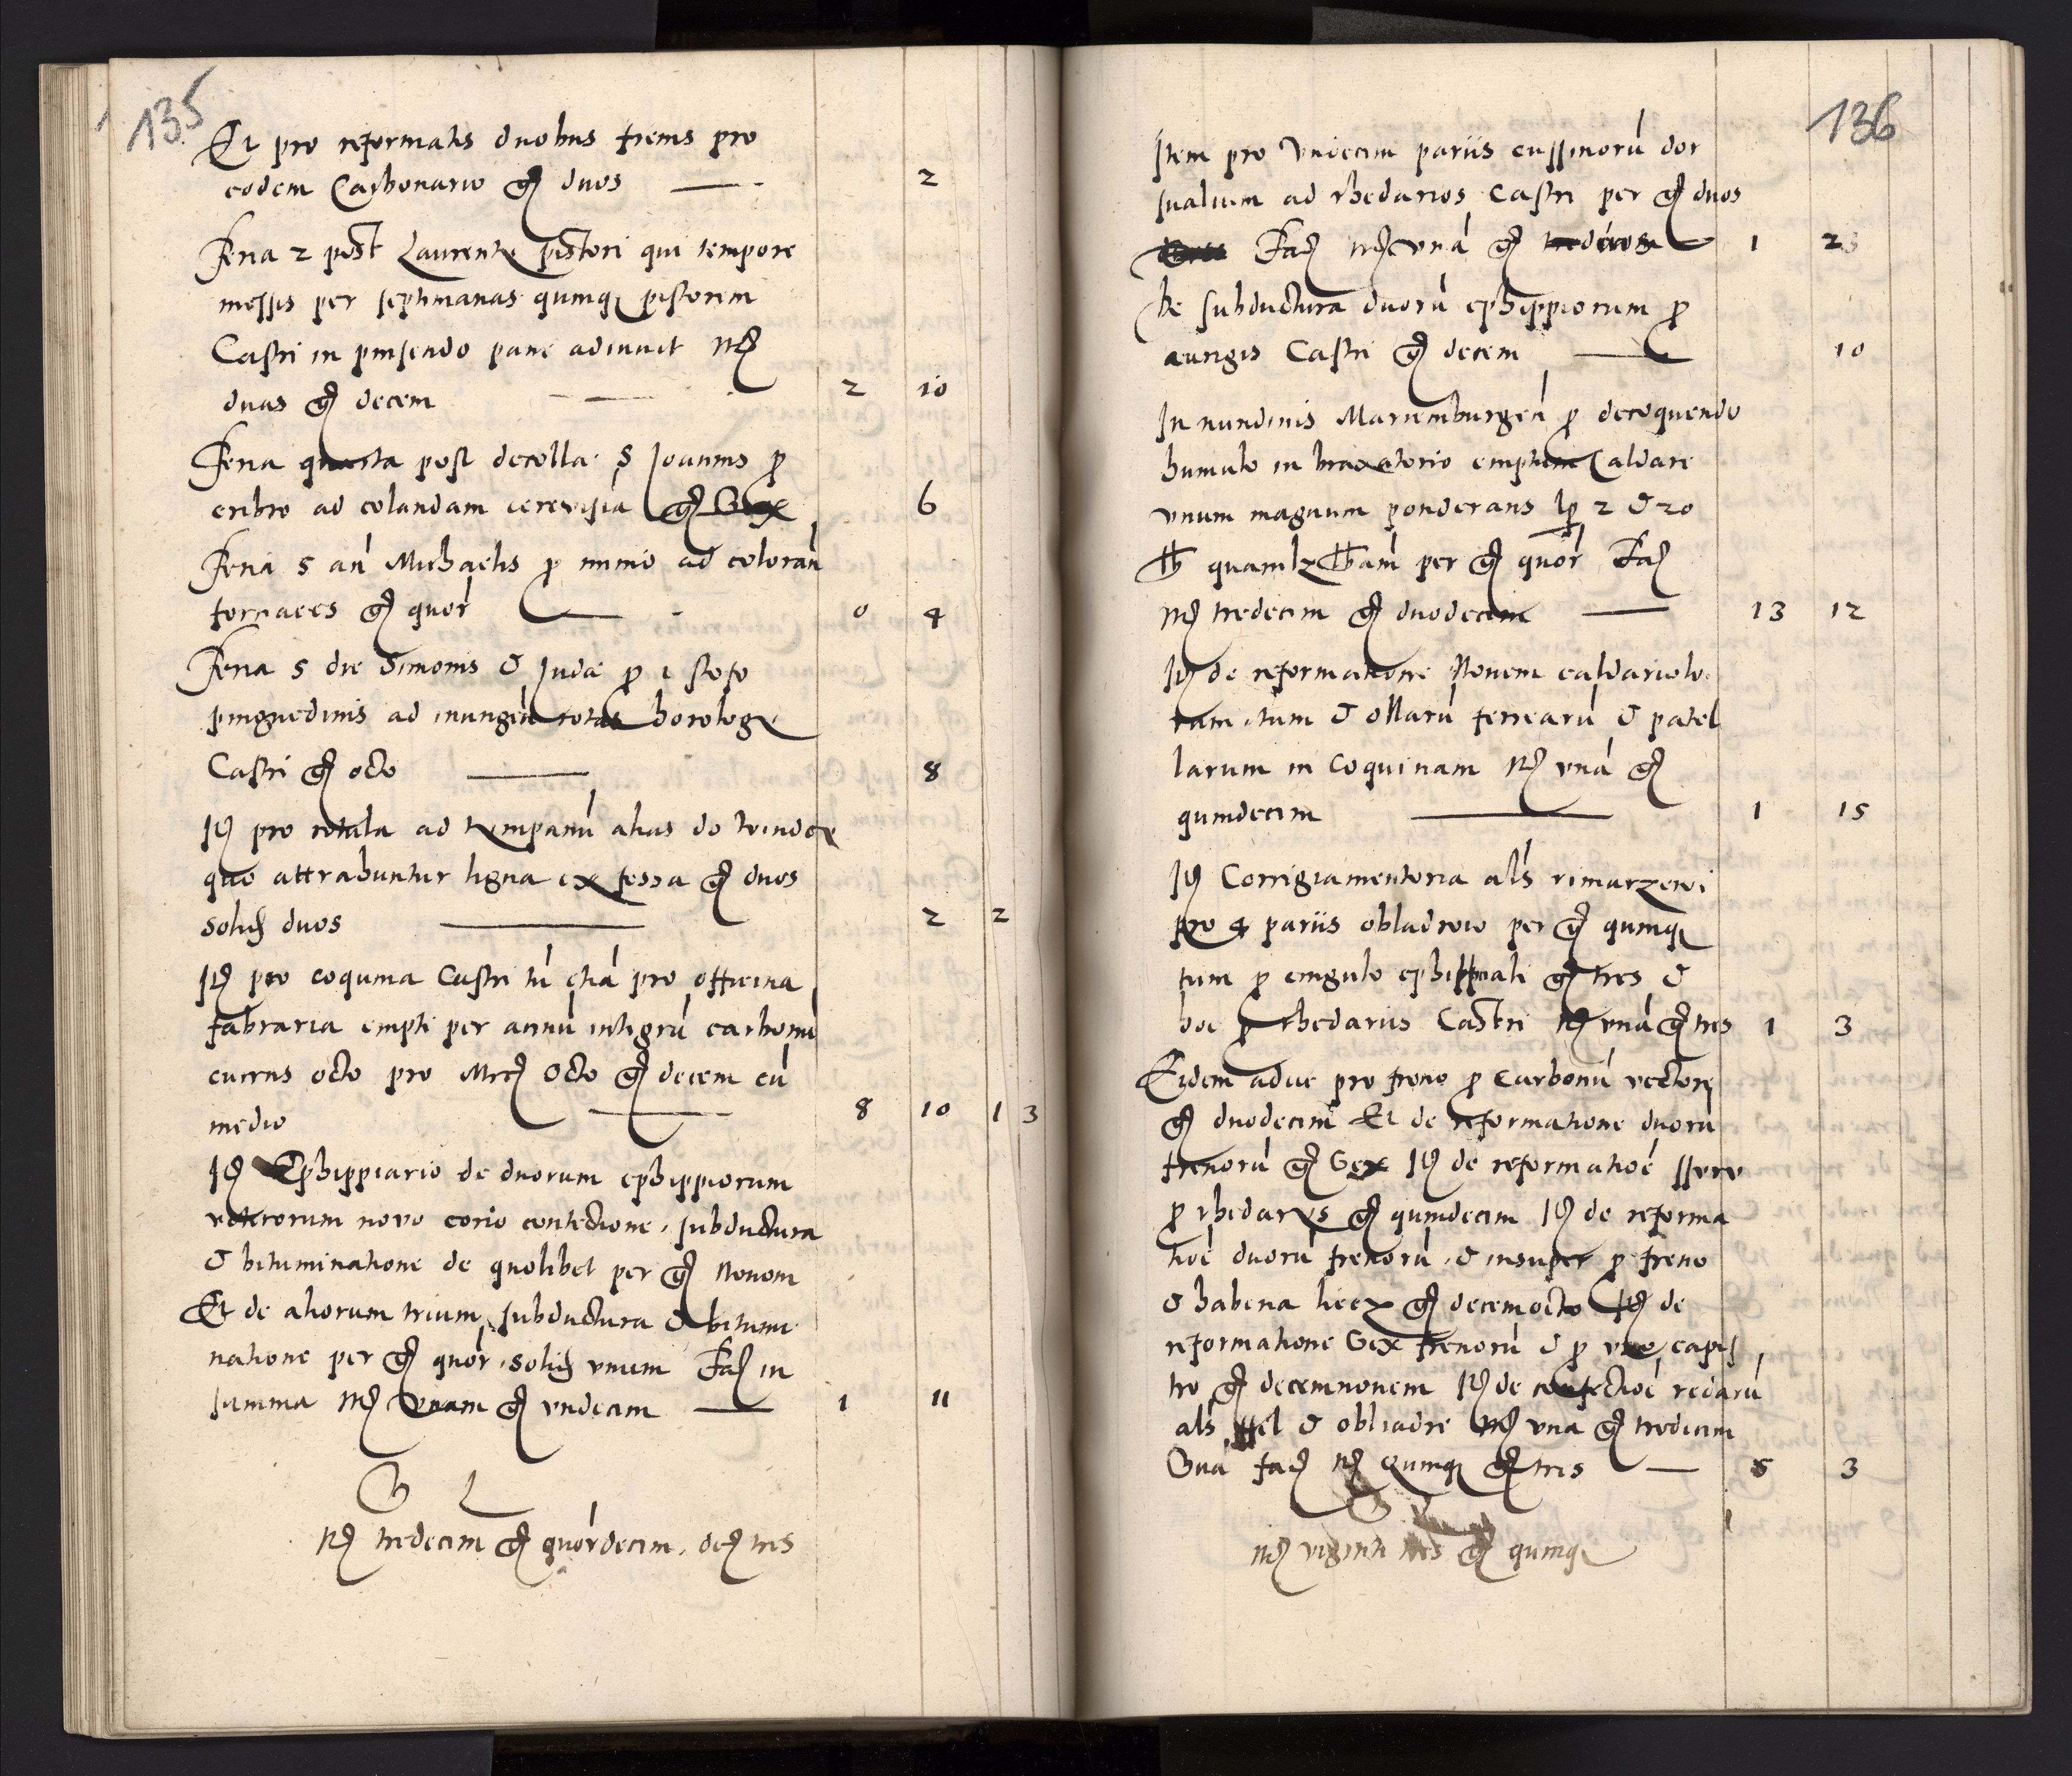 135
Et pro reformatis duobus frenis pro
eodem Carbonario gr duos — 2
Feria 2 post Laurentii pistori qui tempore
messis per septimanas quinque pistorem
Castri in pinsendo pane adiuvit mrc
duas gr decem — 2 10
Feria quarta post decolla: S Joannis p
cribro ad colandam cerevisiā gr Sex 6
Feria 5 an̄ Michaelis p minio ad coloran̄
fornaces gr quor — 0 4
Feria 5 die Simonis & Judæ p 1 stofo
pinguedinis ad inungen̄ rotas horologii
Castri gr octo — 8
It pro rotula ad tympanū alias do windy
quo attrahuntur ligna ex fossa gr duos
solid duos — 2 2
It pro coquina Castri tū etiā pro officina
fabraria empti per annū integrū carbonū
currus octo pro Mrc Octo gr decem cū
medio — 8 10 1 3
It Ephippiario de duorum ephippiorum
veterorum novo corio contectione, subductura
& bituminatione de quolibet per gr Novem
Et de aliorum trium subductura & bitumi
natione per gr quor, solid unum Fac in
summa mrc Unam gr undecim — 1 11
mrc tredecim gr quordecim, den tres
136
Item pro Undecim pariis cussinorū dor
sualium ad rhedarios Castri per gr duos
Fac mrc unā gr 1 23
De subductura duorū ephippiorum p
aurigis Castri gr decem — 10
In nundinis Mariemburgen̄ p decoquendo
humulo in braxatorio emptum Caldare
unum magnum ponderans lp 2 & 20
℔ quamlz ℔am per gr quor Fac
mrc tredecim gr duodecim — 13 12
It de reformatione Novem caldariolo
rum, tum & ollarū ferrearū & patel
larum in coquinam mrc unā gr
quindecim — 1 15
It Corrigiamentoria als rimarzewi
pro 4 pariis obladrow per gr quinque
tum p cingulo ephippiali gr tres &
hoc p rhedariis Castri mrc unā gr tres 1 3
Eidem aduc pro freno p Carbonū vectore
gr duodecim Et de reformatione duorū
frenorū gr Sex It de reformatioē
p rhedariis gr quindecim It de reforma
tioē duorū frenorū, & insuper p freno
& habena gr decemocto It de
reformatione Sex frenorū & p uno capis
tro gr decemnonem It de confectioē redarū
als & mrc una gr tredecim
Suā fac mrc Quinque gr tres — 5 3
mrc viginti tres gr quinque